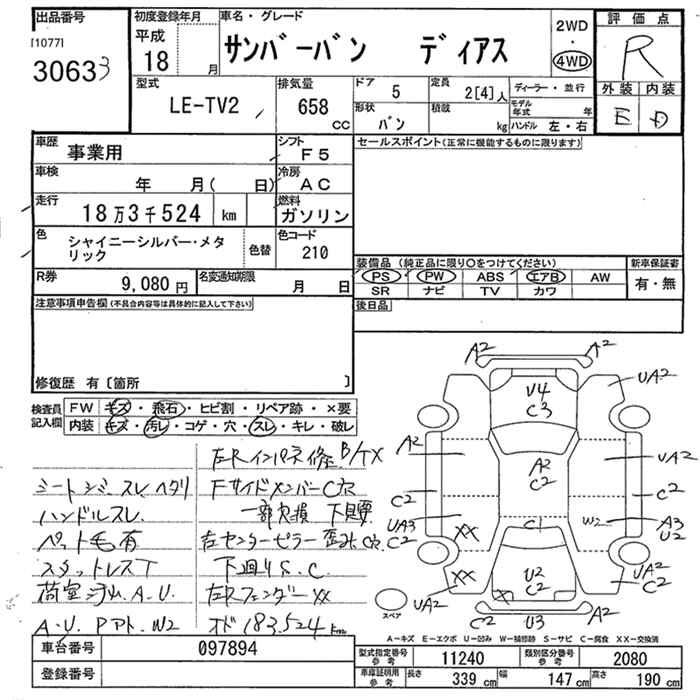 出品番号
[1077]
30633
初度登録年月
平成
18 月
車名・グレード
サンバーバン ディアス
2WD
・
4WD
評価点
R
外装 内装
E D
型式
LE-TV2
排気量
658 CC
ドア 5
定員 2[4]人
ディーラー・並行
形状 バン
積載 kg
モデル年式 年
ハンドル 左・右
車歴 事業用
シフト F5
セールスポイント(正常に機能するものに限ります)
車検 年 月( 日)
冷房 AC
走行 18万3千524 km
燃料 ガソリン
色 シャイニーシルバー・メタリック
色替
色コード 210
装備品 (純正品に限り○をつけてください)
新車保証書
PS PW ABS エアB AW
SR ナビ TV カワ
有・無
R券 9,080 円
名変通知期限 月 日
後日品
注意事項申告欄(不具合内容等は具体的に記入して下さい)
修復歴 有 〔箇所 〕
検査員記入欄
FW キズ・飛石・ヒビ割・リペア跡・×要
内装 キズ・汚レ・コゲ・穴・スレ・キレ・破レ
左Rインパネ修 B/TX
シートシミ スレ ヘタリ
Fサイドメンバー C穴
ハンドルスレ
一部欠損 下廻要
ペット毛有
右センターピラー 歪み C穴
スタットレスT
下廻りS.C
荷室 A.U
左Rフェンダー XX
A.U Pアト W2
オド183.524km
A2 A2
UA2
U4
C3
A2
UA2
A2
C2
C2
C2
UA3
C2
XX
C1
W2
A3
U2
XX
U2
C2
X
UA2
UA2
C2
A2
U3
スペア
A-キズ E-エクボ U-凹み W-補修跡 S-サビ C-腐食 XX-交換済
車台番号 097894
型式指定番号 参考 11240
類別区分番号 参考 2080
登録番号
車庫証明用 参考
長さ 339 cm
幅 147 cm
高さ 190 cm